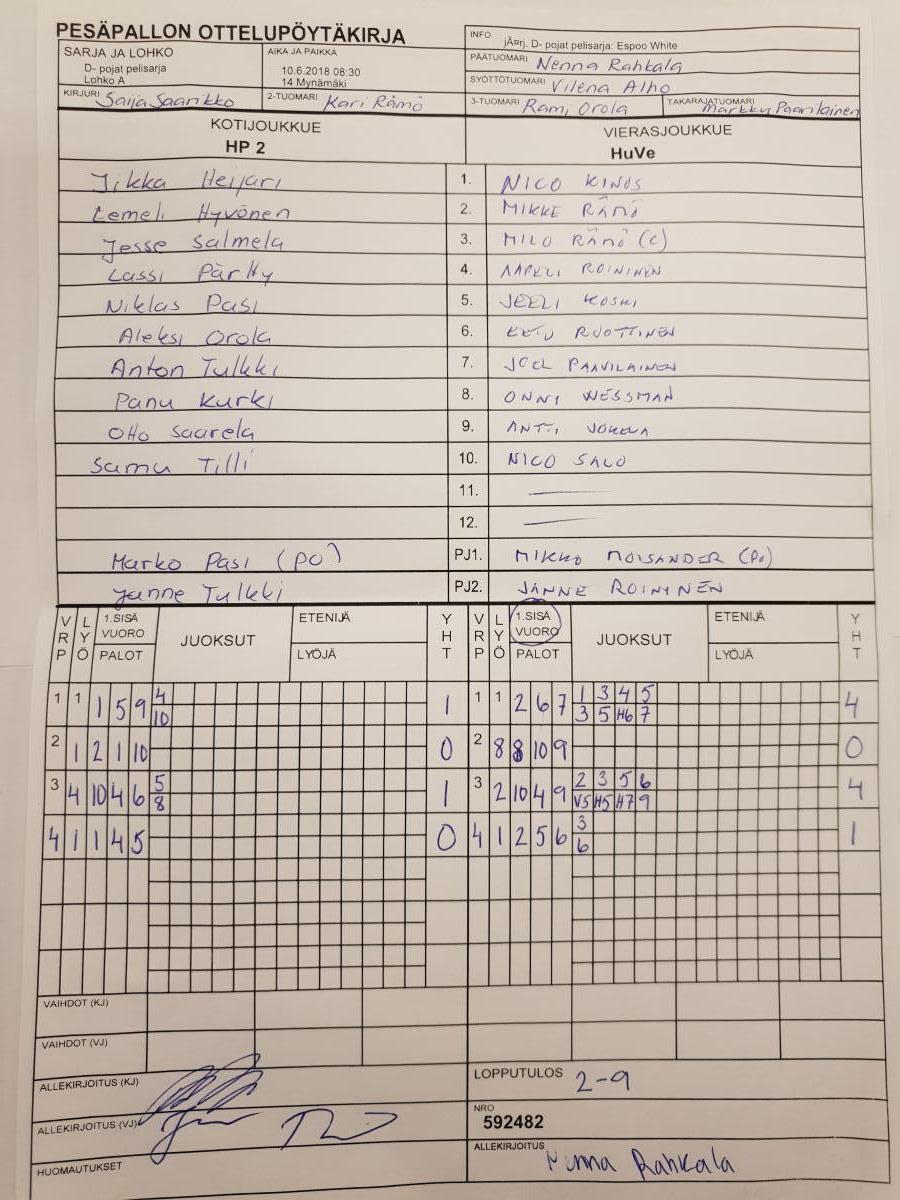 PESÄPALLON OTTELUPÖYTÄKIRJA
INFO jÄ¤rj. D- pojat pelisarja: Espoo White
SARJA JA LOHKO
D- pojat pelisarja
Lohko A
AIKA JA PAIKKA
10.6.2018 08:30
14 Mynämäki
PÄÄTUOMARI Nenna Rahkala
SYÖTTÖTUOMARI Vilena Alho
KIRJURI Saija Saarikko
2-TUOMARI Kari Rämö
3-TUOMARI Rami Orola
TAKARAJATUOMARI Markku Paavilainen
KOTIJOUKKUE
HP 2
VIERASJOUKKUE
HuVe
Jikka Heijari 1. NICO KINOS
Lemeli Hyvönen 2. MIKKE RÄMÖ
Jesse Salmela 3. MILO RÄMÖ (C)
Lassi Pärtty 4. AAPELI ROININEN
Niklas Pasi 5. JEELI KOSKI
Aleksi Orola 6. EETU RUOTTINEN
Anton Tulkki 7. JOEL PAAVILAINEN
Panu Kurki 8. ONNI WESSMAN
Otto Saarela 9. ANTTI
Samu Tilli 10. NICO SALO
11.
12.
Marko Pasi (PO) PJ1. MIKKO MOISANDER (PO)
Janne Tulkki PJ2. JANNE ROININEN
VRP LYÖ 1.SISÄ VUORO PALOT JUOKSUT ETENIJÄ LYÖJÄ YHT VRP LYÖ 1.SISÄ VUORO PALOT JUOKSUT ETENIJÄ LYÖJÄ YHT
1 1 1 5 9 4 1 1 1 2 6 7 1 3 4 5 4
10 3 5 H6 7
2 1 2 1 10 0 2 8 8 10 9 0
3 4 10 4 6 5 1 3 2 10 4 9 2 3 5 6 4
8 V5 H5 H7 9
4 1 1 4 5 0 4 1 2 5 6 3 1
6
VAIHDOT (KJ)
VAIHDOT (VJ)
ALLEKIRJOITUS (KJ)
LOPPUTULOS 2-9
ALLEKIRJOITUS (VJ)
NRO
592482
HUOMAUTUKSET
ALLEKIRJOITUS Menna Rahkala